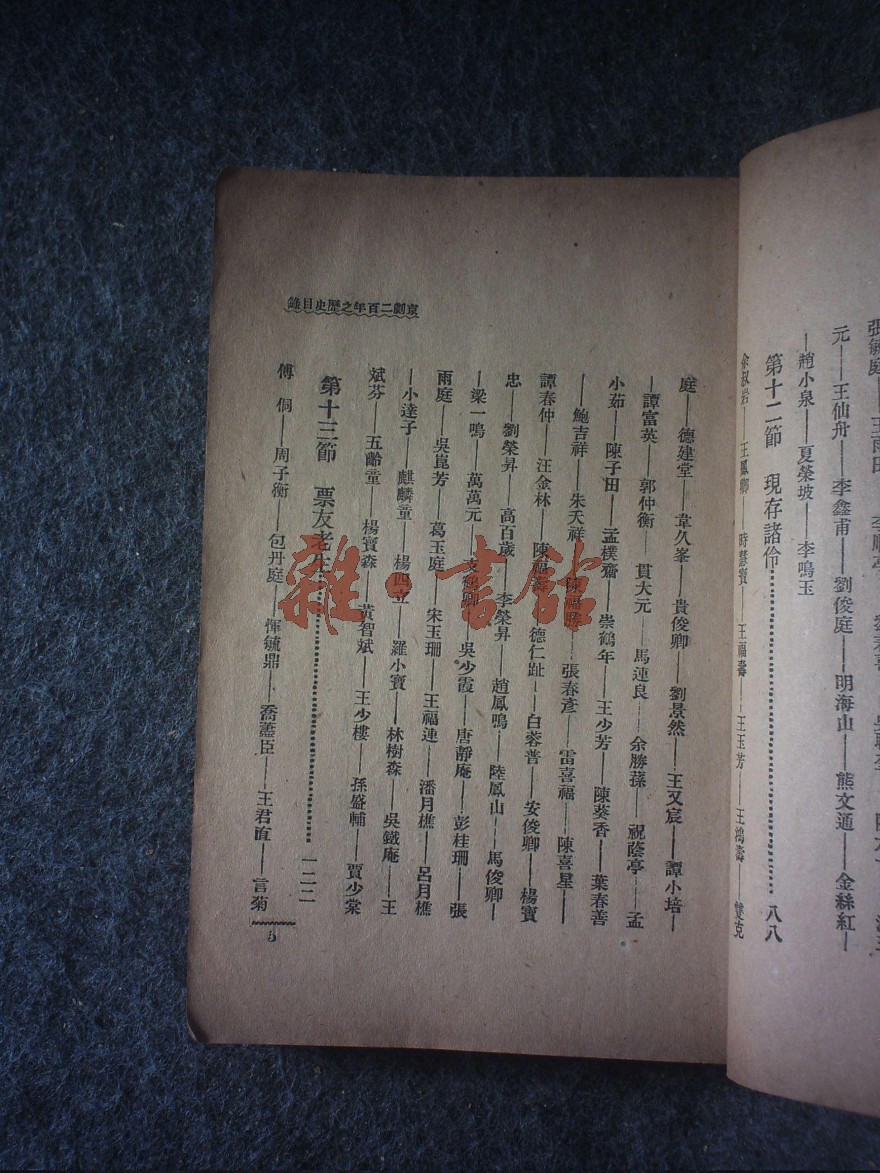 元——王仙舟——李鑫甫——劉俊庭——明海山——熊文通——金絲紅—
—趙小泉——夏榮坡——李鳴玉
第十二節 現存諸伶 八八
余叔岩——王鳳卿——時慧寶——王福壽——王玉芳——王鴻壽——雙克
京劇二百年之歷史目錄
庭——德建堂——韋久峯——貴俊卿——劉景然——王又宸——譚小培—
—譚富英——郭仲衡——貫大元——馬連良——余勝蓀——祝蔭亭——孟
小茹——陳子田——孟樸齋——崇鶴年——王少芳——陳葵香——葉春善
——鮑吉祥——朱天祥——陳福勝——張春彥——雷喜福——陳喜星——
譚春仲——汪金林——陳福壽——德仁趾——白蓉普——安俊卿——楊寶
忠——劉榮昇——高百歲——李榮昇——趙鳳鳴——陸鳳山——馬俊卿—
—梁一鳴——萬萬元——吳少霞——唐靜庵——彭桂珊——張
雨庭——吳崑芳——葛玉庭——宋玉珊——王福連——潘月樵——呂月樵
—小達子——麒麟童——楊四立——羅小寶——林樹森——吳鐵庵——王
斌芬——五齡童——楊寶森——黃智斌——王少樓——孫盛輔——賈少棠
第十三節 票友老生 一二二
傅侗——周子衡——包丹庭——惲毓鼎——喬藎臣——王君直——言菊
5
雜·書館